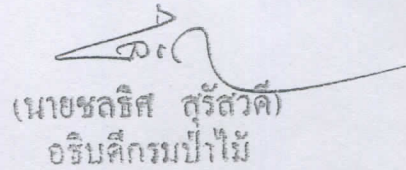 (นายชลธิศ สุรัสวดี)
อธิบดีกรมป่าไม้